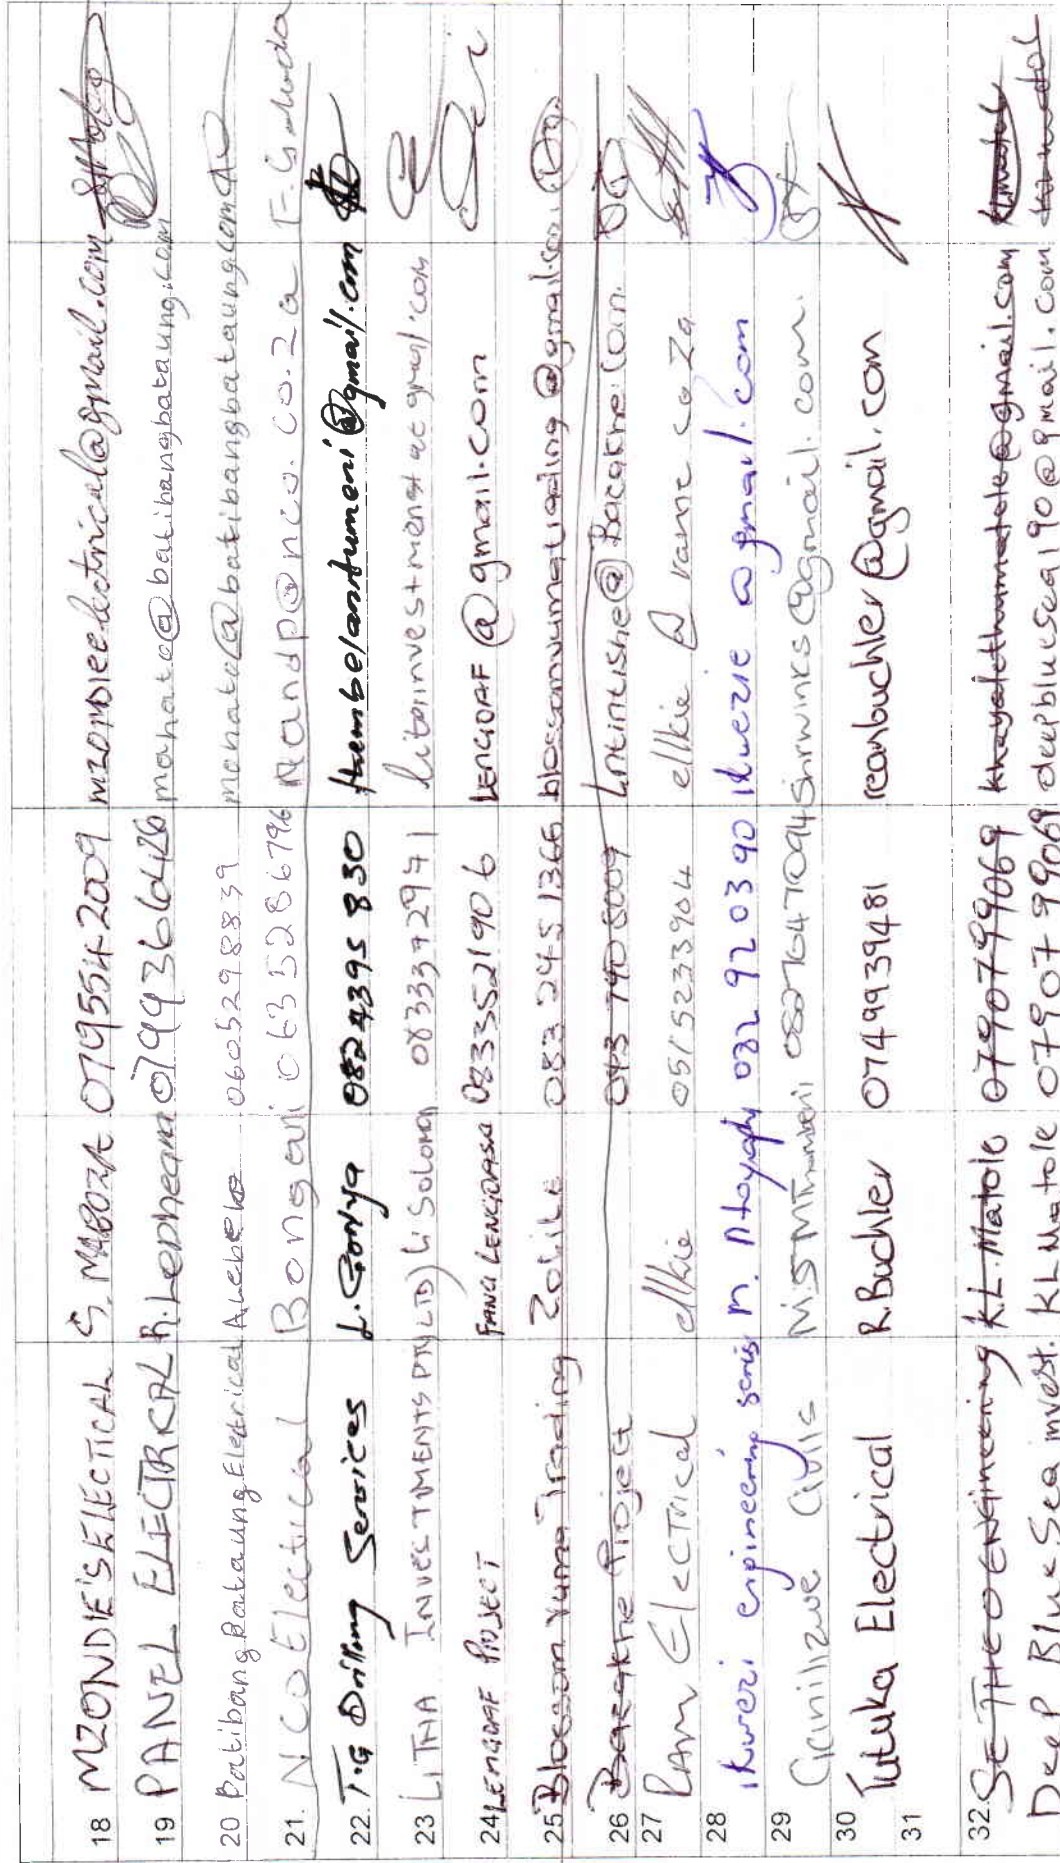 18 MZONDIE'S ELECTICAL S. MABOZA 0795542009 mzondieelectrical@gmail.com
19 PANEL ELECTRICAL R. Lepheana 0799366426 mahato@batibangbataung.com
20 Batibang Bataung Electrical A. Lebeko 0605298839 mahato@batibangbataung.com
21. NCO Electrical Bongani 0635286796 Nandp@nco.co.za
22. T.G Drilling Services L. Gonya 0824395830 thembelanitumeni@gmail.com
23 LITHA INVESTMENTS PTY LTD) Li Solomon 0833372971 litainvestment at gmail.com
24 LENGDAF PROJECT FANGI LENGDASA 0833521906 LENGDAF@gmail.com
25 Blossom Vuma Trading Zolile 083 245 1366 blossomvumatrading@gmail.com
26 Bacakhe Project 043 740 8009 Lntintishe@Bacakhe.com
27 RAM Electrical ellkie 0515233904 ellkie @ ramc co za
28 ikwezi engineering servis M. Ntoyaphi 082 92 03 90 ikwezie@gmail.com
29 Gcinilizwe Civils M.S MThimbeni 0827647094 Sirwinks@gmail.com.
30 Tutuka Electrical R. Buchler 0749939481 reonbuchler@gmail.com
31
32. SETHEO ENgineering KL. Matole 0790799069 khayalethumatole@gmail.com
Deep Blue Sea invest. KL Matole 0790799069 deepbluesea190@gmail.com